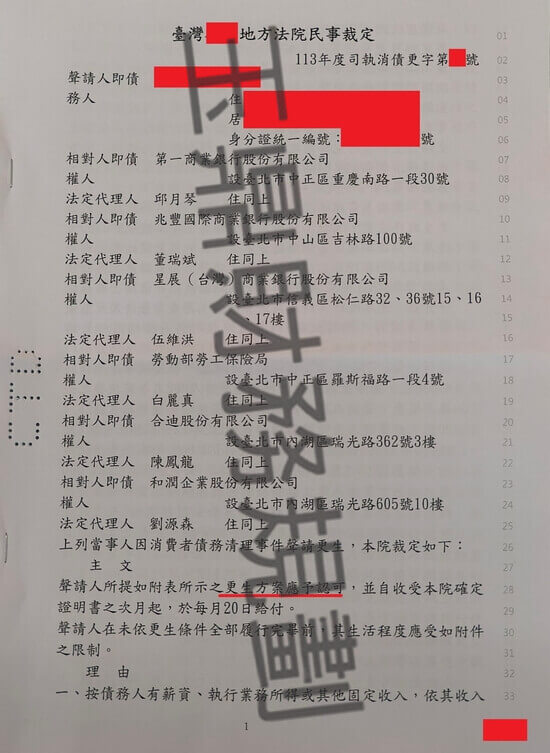 臺灣 地方法院民事裁定 01
113年度司執消債更字第 號 02
聲請人即債 03
務人 住 04
居 05
身分證統一編號： 號 06
相對人即債 第一商業銀行股份有限公司 07
權人 設臺北市中正區重慶南路一段30號 08
法定代理人 邱月琴 住同上 09
相對人即債 兆豐國際商業銀行股份有限公司 10
權人 設臺北市中山區吉林路100號 11
法定代理人 董瑞斌 住同上 12
相對人即債 星展（台灣）商業銀行股份有限公司 13
權人 設臺北市信義區松仁路32、36號15、16 14
、17樓 15
法定代理人 伍維洪 住同上 16
相對人即債 勞動部勞工保險局 17
權人 設臺北市中正區羅斯福路一段4號 18
法定代理人 白麗真 住同上 19
相對人即債 合迪股份有限公司 20
權人 設臺北市內湖區瑞光路362號3樓 21
法定代理人 陳鳳龍 住同上 22
相對人即債 和潤企業股份有限公司 23
權人 設臺北市內湖區瑞光路605號10樓 24
法定代理人 劉源森 住同上 25
上列當事人因消費者債務清理事件聲請更生，本院裁定如下： 26
主 文 27
聲請人所提如附表所示之更生方案應予認可，並自收受本院確定 28
證明書之次月起，於每月20日給付。 29
聲請人在未依更生條件全部履行完畢前，其生活程度應受如附件 30
之限制。 31
理 由 32
一、按債務人有薪資、執行業務所得或其他固定收入，依其收入 33
1
玉鼎財務規劃